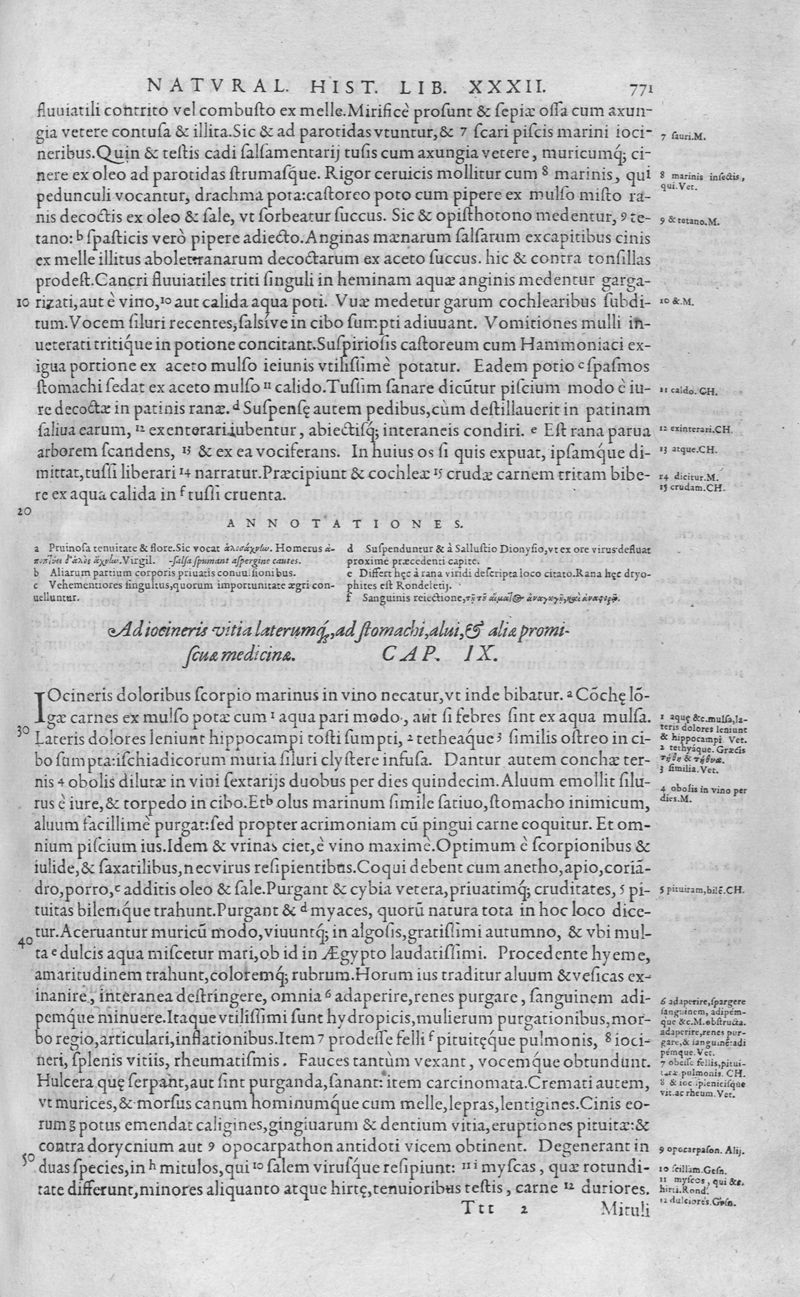 NATVRAL. HIST. LIB. XXXII. 771
fluuiatili contrito vel combuſto ex melle.Mirificè proſunt & ſepiæ oſſa cum axun-
gia vetere contuſa & illita.Sic & ad parotidas vtuntur,& 7 ſcari piſcis marini ioci-
neribus.Quin & teſtis cadi ſalſamentarij tuſis cum axungia vetere, muricumq́; ci-
nere ex oleo ad parotidas ſtrumaſque. Rigor ceruicis mollitur cum 8 marinis, qui
pedunculi vocantur, drachma pota:caſtoreo poto cum pipere ex mulſo miſto ra-
nis decoctis ex oleo & ſale, vt ſorbeatur ſuccus. Sic & opiſthotono medentur, 9 te-
tano: b ſpaſticis verò pipere adiecto.Anginas mænarum ſalſarum excapitibus cinis
ex melle illitus abolet:ranarum decoctarum ex aceto ſuccus. hic & contra tonſillas
prodeſt.Cancri fluuiatiles triti ſinguli in heminam aquæ anginis medentur garga-
10 rizati,aut è vino,10 aut calida aqua poti. Vuæ medetur garum cochlearibus ſubdi-
tum.Vocem ſiluri recentes,ſalſive in cibo ſumpti adiuuant. Vomitiones mulli in-
ueterati tritique in potione concitant.Suſpirioſis caſtoreum cum Hammoniaci ex-
igua portione ex aceto mulſo ieiunis vtiliſſimè potatur. Eadem potio c ſpaſmos
ſtomachi ſedat ex aceto mulſo 11 calido.Tuſſim ſanare dicũtur piſcium modo è iu-
re decoctæ in patinis ranæ. d Suſpenſę autem pedibus,cùm deſtillauerit in patinam
ſaliua earum, 12 exenterari iubentur, abiectiſq́; interaneis condiri. e Eſt rana parua
arborem ſcandens, 13 & ex ea vociferans. In huius os ſi quis expuat, ipſamque di-
mittat,tuſſi liberari 14 narratur.Præcipiunt & cochleæ 15 crudæ carnem tritam bibe-
re ex aqua calida in f tuſſi cruenta.
7 ſauri.M.
8 marinis inſectis,
qui.Vet.
9 & tetano.M.
10 &.M.
11 caldo. CH.
12 exinterari.CH.
13 atque.CH.
14 dicitur.M.
15 crudam.CH.
20
ANNOTATIONES.
a Pruinoſa tenuitate & flore.Sic vocat Homerus
Virgil. -ſalſa ſpumant aſpergine cautes.
b Aliarum partium corporis priuatis conuulſionibus.
c Vehementiores ſingultus,quorum importunitate ægri con-
uelluntur.
d Suſpenduntur & à Salluſtio Dionyſio,vt ex ore virus defluat
proximè præcedenti capite.
e Differt hęc à rana viridi deſcripta loco citato.Rana hęc dryo-
phites eſt Rondeletij.
f Sanguinis reiectione,
Ad iocineris vitia laterumq́;,ad ſtomachi,alui,& alia promi-
ſcua medicina. CAP. IX.
IOcineris doloribus ſcorpio marinus in vino necatur,vt inde bibatur. a Cõchę lõ-
gæ carnes ex mulſo potæ cum 1 aqua pari modo, aut ſi febres ſint ex aqua mulſa.
30 Lateris dolores leniunt hippocampi toſti ſumpti, 2 tetheaque 3 ſimilis oſtreo in ci-
bo ſumpta:iſchiadicorum muria ſiluri clyſtere infuſa. Dantur autem conchæ ter-
nis 4 obolis dilutæ in vini ſextarijs duobus per dies quindecim.Aluum emollit ſilu-
rus è iure,& torpedo in cibo.Et b olus marinum ſimile ſatiuo,ſtomacho inimicum,
aluum facillimè purgat:ſed propter acrimoniam cũ pingui carne coquitur. Et om-
nium piſcium ius.Idem & vrinas ciet,è vino maximè.Optimum è ſcorpionibus &
iulide,& ſaxatilibus,nec virus reſipientibus.Coqui debent cum anetho,apio,coriã-
dro,porro,c additis oleo & ſale.Purgant & cybia vetera,priuatimq́; cruditates, 5 pi-
tuitas bilemque trahunt.Purgant & d myaces, quorũ natura tota in hoc loco dice-
tur.Aceruantur muricũ modo,viuuntq́; in algoſis,gratiſſimi autumno, & vbi mul-
40 ta e dulcis aqua miſcetur mari,ob id in Ægypto laudatiſſimi. Procedente hyeme,
amaritudinem trahunt,coloremq́; rubrum.Horum ius traditur aluum & veſicas ex-
inanire, interanea deſtringere, omnia 6 adaperire,renes purgare, ſanguinem adi-
pemque minuere.Itaque vtiliſſimi ſunt hydropicis,mulierum purgationibus,mor-
bo regio,articulari,inflationibus.Item 7 prodeſſe felli f pituitęque pulmonis, 8 ioci-
neri, ſplenis vitiis, rheumatiſmis. Fauces tantùm vexant, vocemque obtundunt.
Hulcera quę ſerpant,aut ſint purganda,ſanant: item carcinomata.Cremati autem,
vt murices,& morſus canum hominumque cum melle,lepras,lentigines.Cinis eo-
rum g potus emendat caligines,gingiuarum & dentium vitia,eruptiones pituitæ:&
contra dorycnium aut 9 opocarpathon antidoti vicem obtinent. Degenerant in
50 duas ſpecies,in h mitulos,qui 10 ſalem viruſque reſipiunt: 11 i myſcas, quæ rotundi-
tate differunt,minores aliquanto atque hirtę,tenuioribus teſtis, carne 12 duriores.
Ttt 2 Mituli
1 aquę &c.mulſa,la-
teris dolores leniunt
& hippocampi. Vet.
2 tethyáque. Græcis
τήθυ & τήθυα.
3 ſimilia.Vet.
4 obolis in vino per
dies.M.
5 pituitam,bilẽ.CH.
6 adaperire,ſpargere
ſanguinem, adipem-
que &c.M.obſtructa.
adaperire,renes pur-
gare,& ſanguinẽ adi
pemque.Vet.
7 obeſſe fellis,pitui-
tæ pulmonis. CH.
8 & ioc.ſpleniciſque
vit.ac rheum.Vet.
9 opocarpaſon. Alij.
10 ſcillam.Geſn.
11 myſcos, qui &c.
hirti.Rond.
12 dulciores.Geſn.